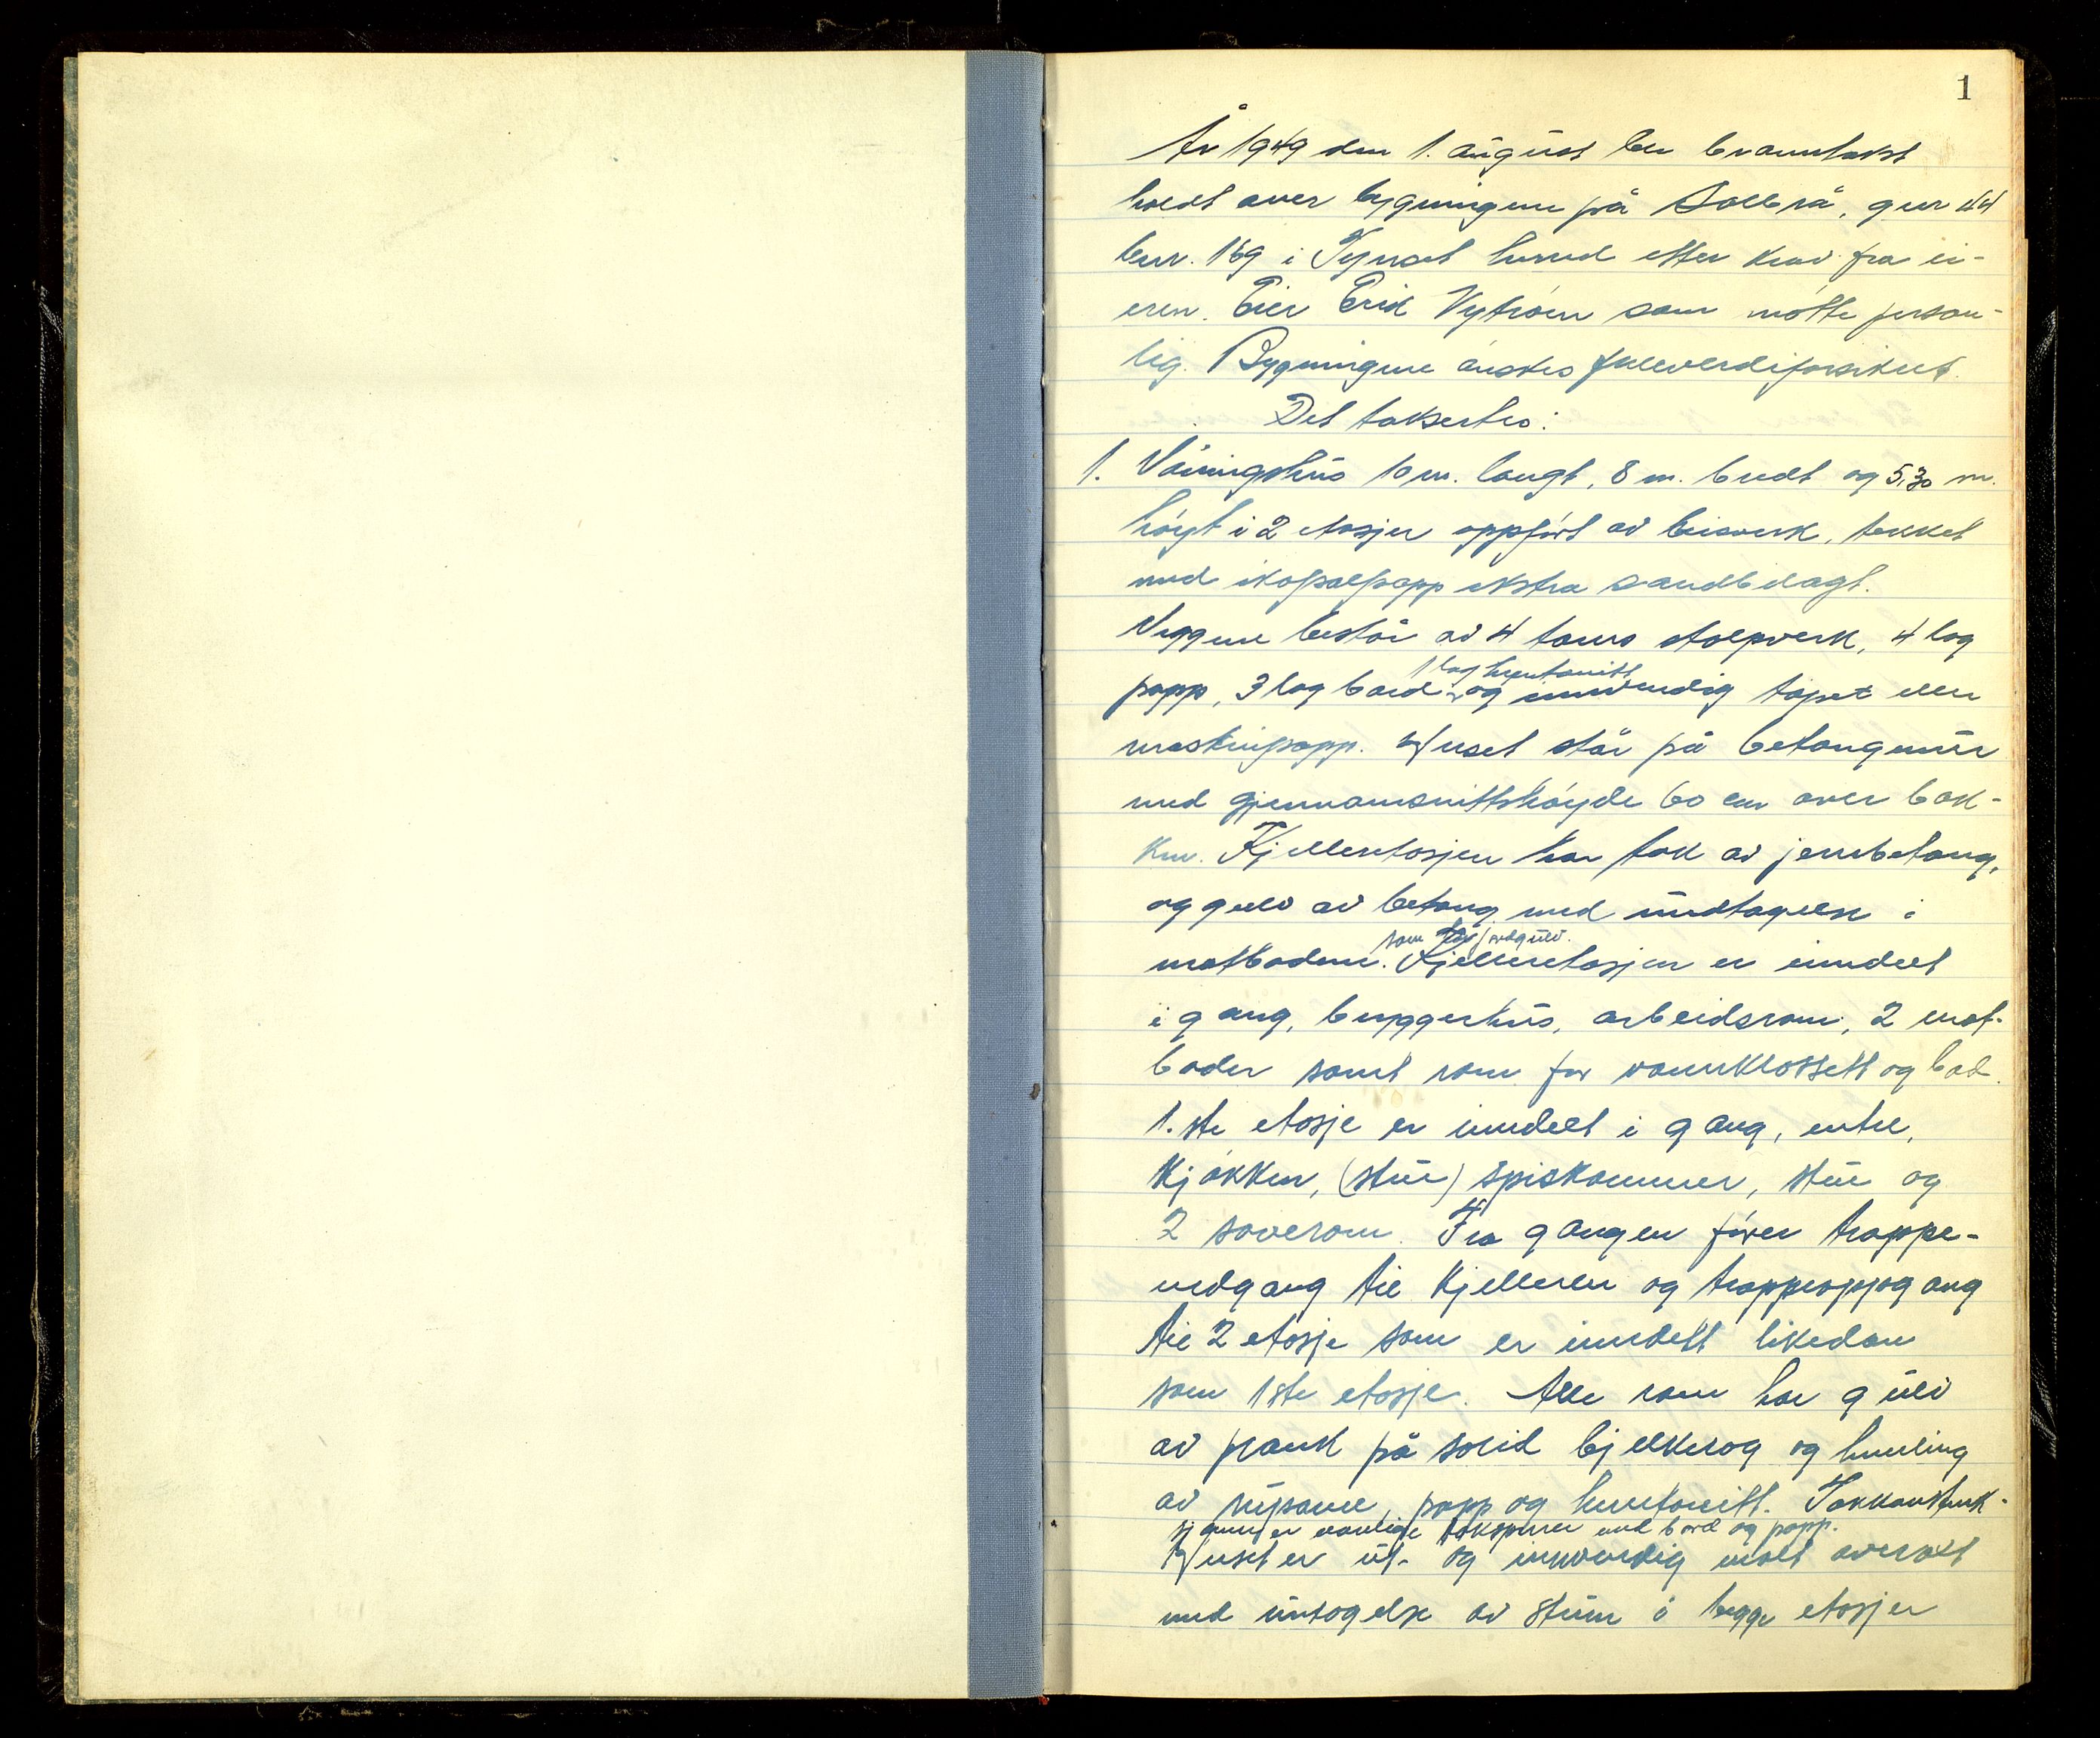 1
År 1949 den 1. august ble branntakst
holdt over bygningene på Solbrå, gnr 44
bnr. 169 i Tynset herred etter krav fra ei-
eren. Eier Erik Nytrøen som møtte person-
lig. Bygningene ønskes fullverdiforsikret.
Det taksertes:
1. Våningshus 10 m. langt, 8 m. bredt og 5,30 m.
høyt i 2 etasjer oppført av beisverk, tekket
med ikopalpapp ekstra sandbelagt.
Veggene består av 4 toms stolpverk, 4 lag
1 lag huntonitt
papp, 3 lag bord og innvendig tapet eller
maskinpapp. Huset står på betongmur
med gjennomsnittshøyde 60 cm over bak-
ken. Kjelleretasjen har tak av jernbetong,
og gulv av betong med undtagelse i
som har jordgulv.
matbodene. Kjelleretasjen er inndelt
i gang, bryggerhus, arbeidsrom, 2 mat-
boder samt rom for vannklossett og bad.
1.ste etasje er inndelt i gang, entre,
kjøkken, (stue) spiskammer, stue og
2 soverom. Fra gangen fører trappe-
nedgang til kjelleren og trappeoppgang
til 2 etasje som er inndelt likedan
som 1ste etasje. Alle rom har gulv
av plank på solid bjelkelag og himling
av rupanel, papp og huntonitt. Takkonstruk-
sjonen er vanlige taksperrer med bord og papp.
Huset er ut- og innvendig malt overalt
med untagelse av stuen i begge etasjer